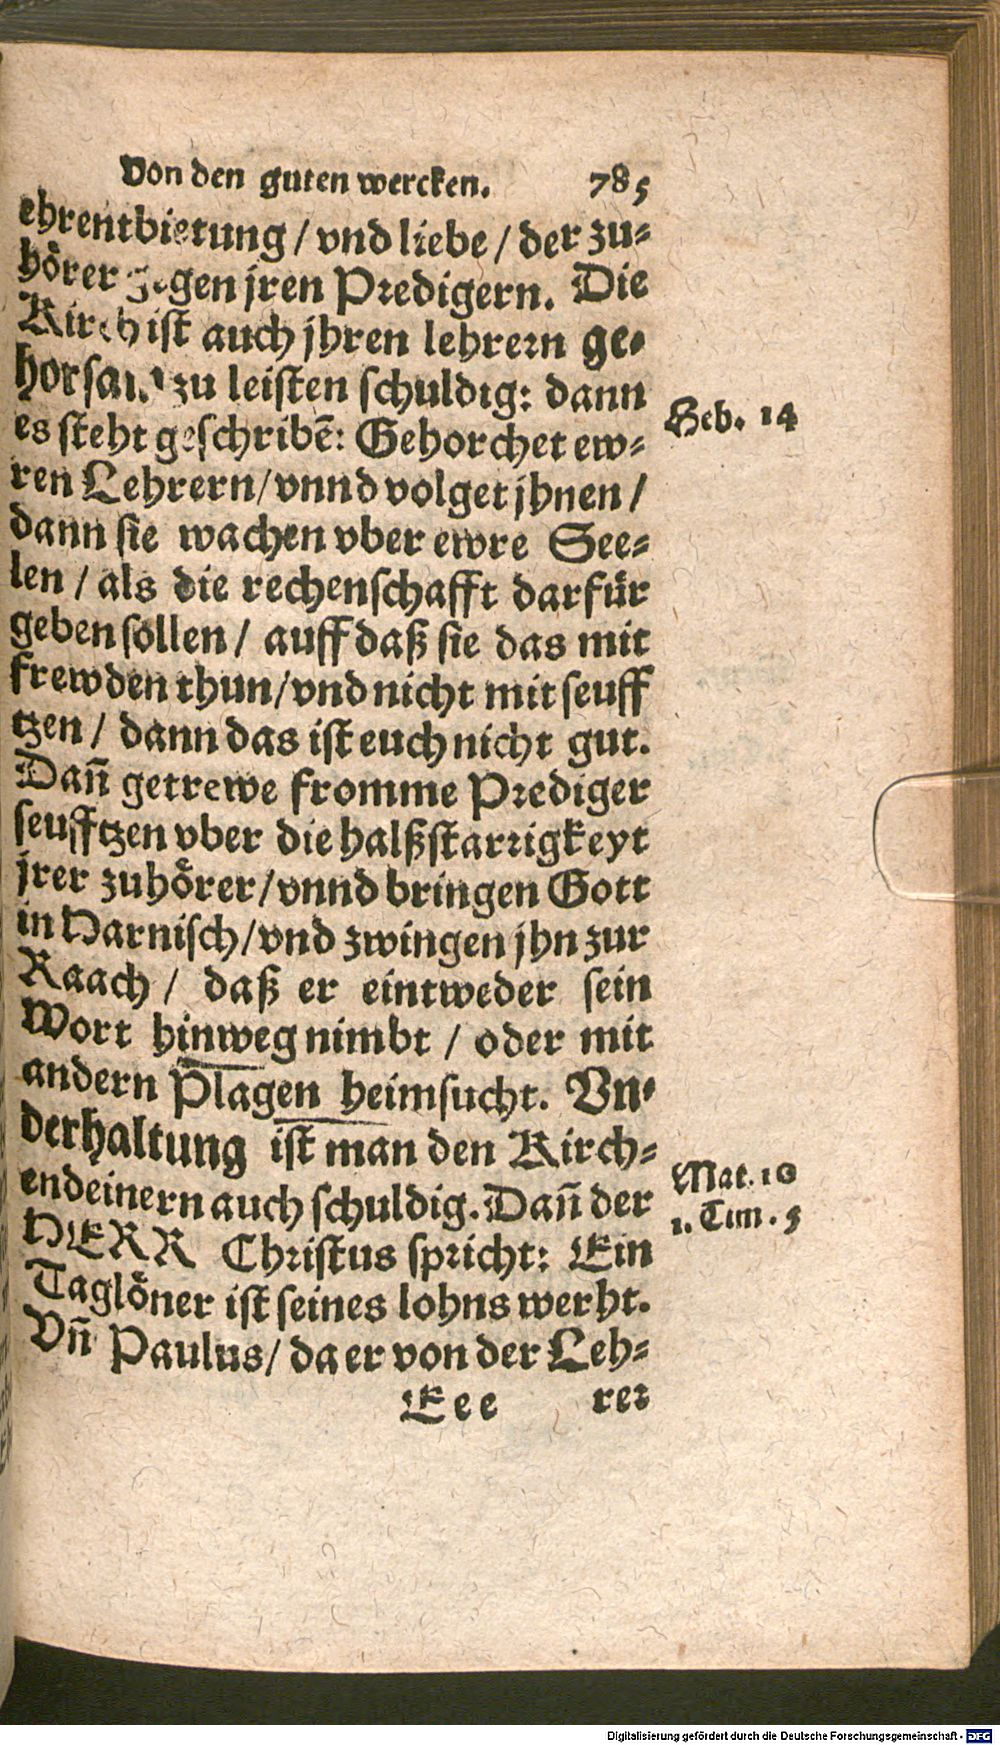 Von den guten wercken. 785
ehrentbietung / vnd liebe / der zu⸗
hörer gegen jren Predigern. Die
Kirch ist auch jhren lehrern ge⸗
horsam zu leisten schuldig: dann
es steht geschribē: Gehorchet ew⸗
Heb. 14
ren Lehrern / vnnd volget jhnen /
dann sie wachen vber ewre See⸗
len / als die rechenschafft darfür
geben sollen / auff daß sie das mit
frewden thun / vnd nicht mit seuff
tzen / dann das ist euch nicht gut.
Dañ getrewe fromme Prediger
seufftzen vber die halßstarrigkeyt
jrer zuhörer / vnnd bringen Gott
in Harnisch / vnd zwingen jhn zur
Raach / daß er eintweder sein
Wort hinweg nimbt / oder mit
andern Plagen heimsucht. Vn⸗
derhaltung ist man den Kirch⸗
endeinern auch schuldig. Dañ der
Mat. 10
HERR Christus spricht: Ein
1. Tim. 5
Taglöner ist seines lohns werht.
Vñ Paulus / da er von der Leh⸗
Eee rer
Digitalisierung gefördert durch die Deutsche Forschungsgemeinschaft - DFG